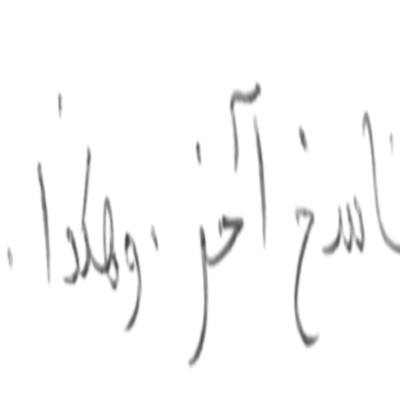 ناسخ آخر . وهكذا .